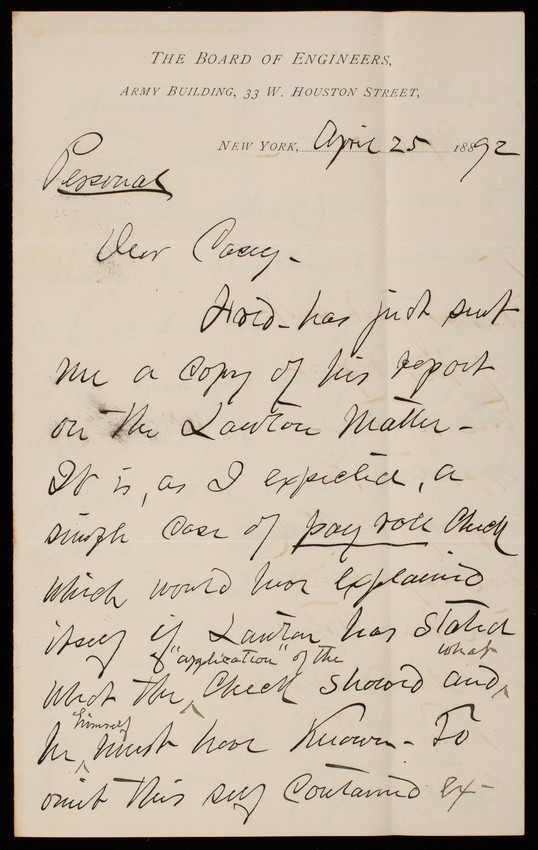 THE BOARD OF ENGINEERS,
ARMY BUILDING, 33 W. HOUSTON STREET,
NEW YORK, April 25 18892
Personal
Dear Casey -
has just sent
me a copy of his report
on the Lawton Matter -
It is, as I expected, a
simple case of pay roll Check
which would have explained
itself if Lawton has stated
"application" of the what
what the Check showed and
himself
he must have Known - To
omit this self contained ex-